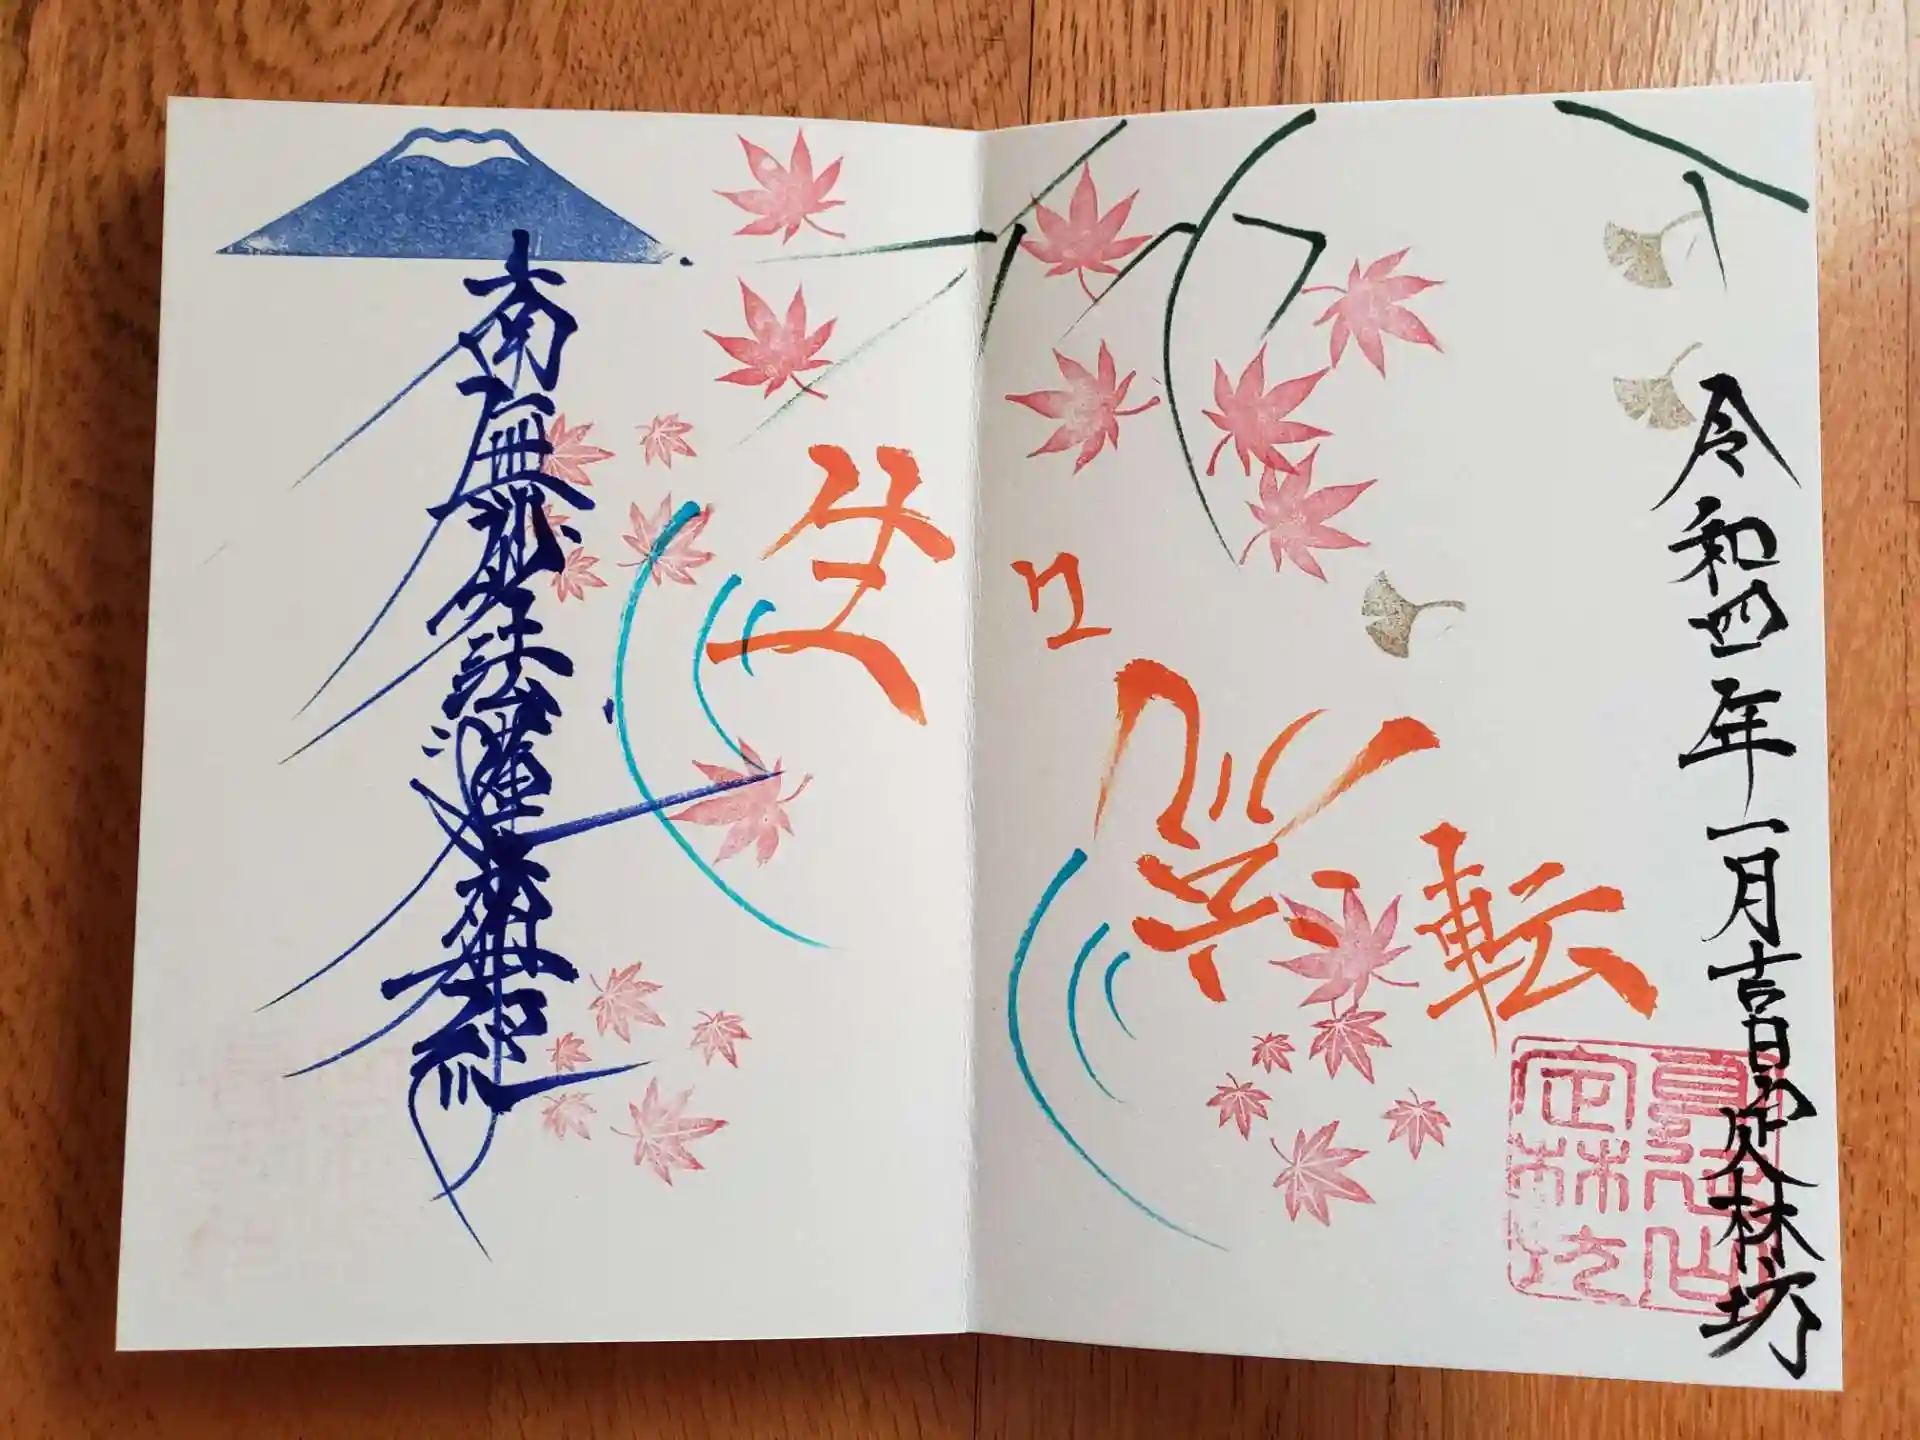 令和四年一月吉日定林坊
身延山
定林坊
転
南無妙法蓮華経